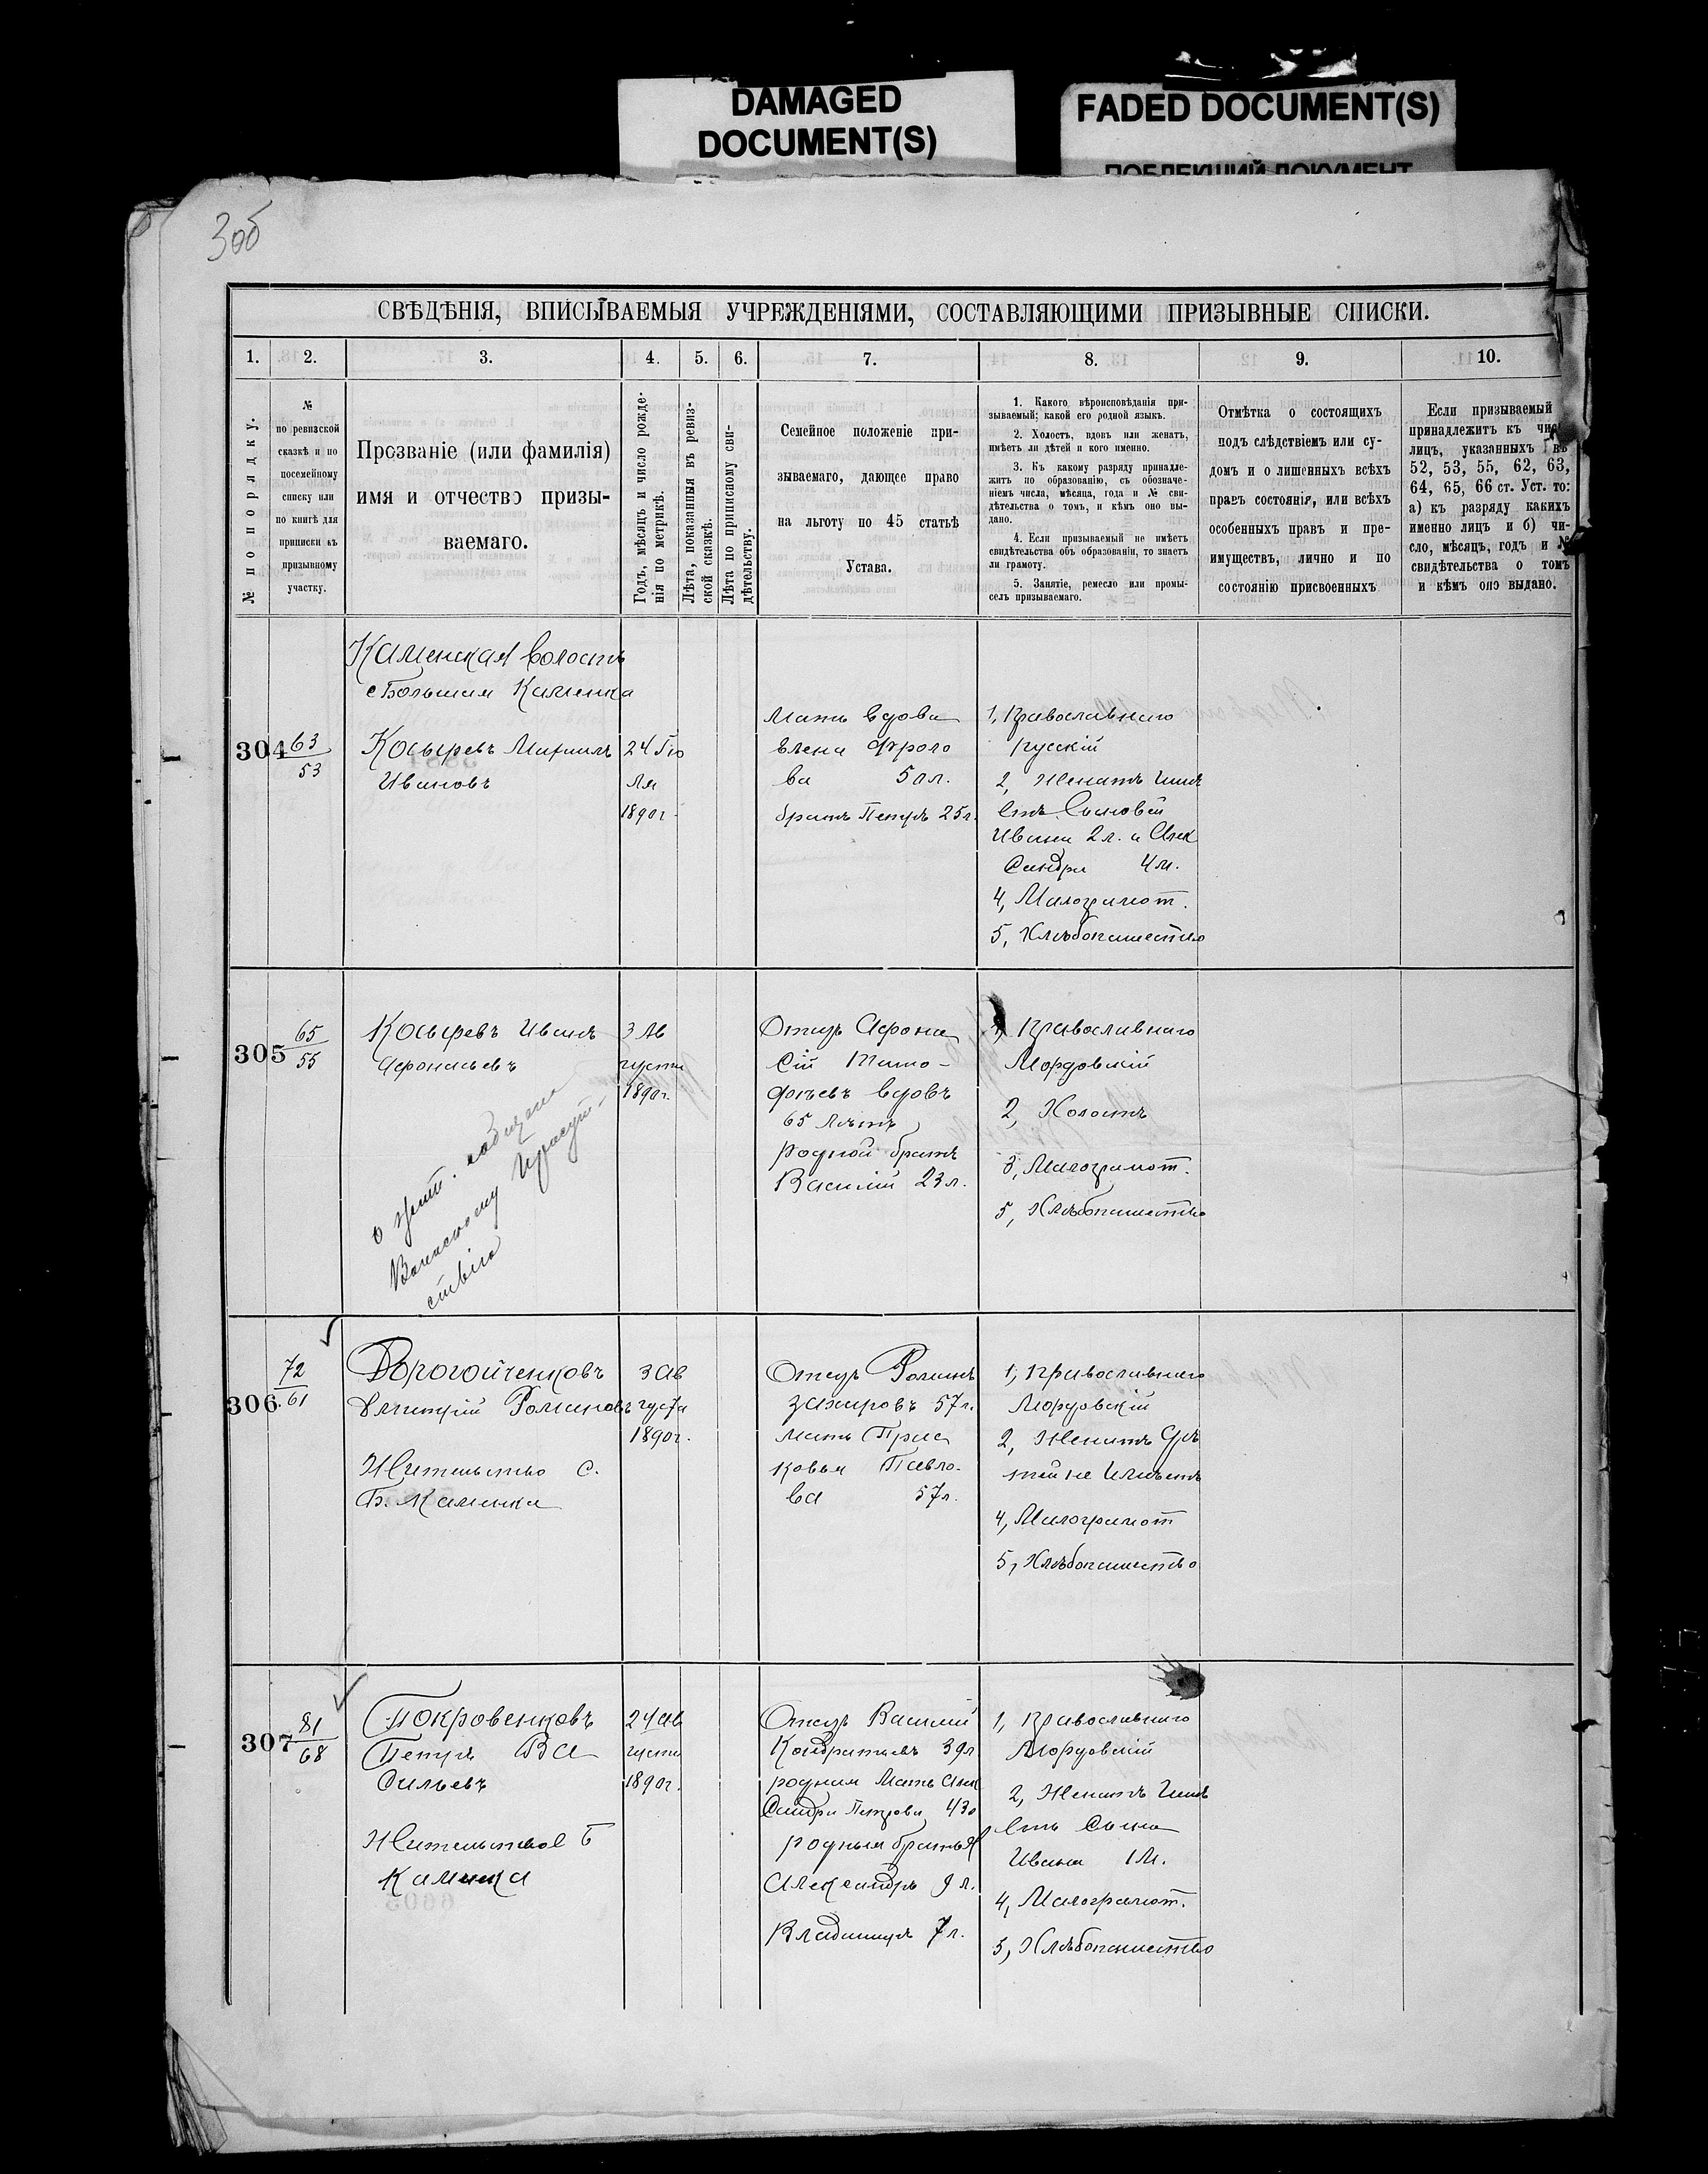 DAMAGED
DOCUMENT(S)
FADED DOCUMENT(S)
ПОБЛЕКШИЙ ДОКУМЕНТ
306
СВѢДѢНІЯ, ВПИСЫВАЕМЫЯ УЧРЕЖДЕНІЯМИ, СОСТАВЛЯЮЩИМИ ПРИЗЫВНЫЕ СПИСКИ.
1. 2. 3. 4. 5. 6. 7. 8. 9. 10.
№ по порядку.
№
по ревизской
сказкѣ и по
посемейному
списку или
по книгѣ для
приписки къ
призывному
участку.
Прозваніе (или фамилія)
имя и отчество призы-
ваемаго.
Годъ, мѣсяцъ и число рожде-
нія по метрикѣ.
Лѣта, показанныя въ ревиз-
ской сказкѣ.
Лѣта по приписному сви-
дѣтельству.
Семейное положеніе при-
зываемаго, дающее право
на льготу по 45 статьѣ
Устава.
1. Какого вѣроисповѣданія при-
зываемый; какой его родной языкъ.
2. Холостъ, вдовъ или женатъ,
имѣетъ ли дѣтей и кого именно.
3. Къ какому разряду принадле-
житъ по образованію, съ обозначе-
ніемъ числа, мѣсяца, года и № сви-
дѣтельства о томъ, и кѣмъ оно вы-
дано.
4. Если призываемый не имѣетъ
свидѣтельства объ образованіи, то знаетъ
ли грамоту.
5. Занятіе, ремесло или промы-
селъ призываемаго.
Отмѣтка о состоящихъ
подъ слѣдствіемъ или су-
домъ и о лишенныхъ всѣхъ
правъ состоянія, или всѣхъ
особенныхъ правъ и пре-
имуществъ, лично и по
состоянію присвоенныхъ
Если призываемый
принадлежитъ къ числу
лицъ, указанныхъ въ
52, 53, 55, 62, 63,
64, 65, 66 ст. Уст. то:
а) къ разряду какихъ
именно лицъ и б) чи-
сло, мѣсяцъ, годъ и №
свидѣтельства о томъ
и кѣмъ оно выдано.
Каменская волость
с Большая Каменка
304
63
53
Косыревъ Михаилъ
Ивановъ
24 Iю
ля
1890г.
Мать вдова
Елена Фроло
ва 50л.
братъ Петръ 25л.
1, Православнаго
русскій
2, Женатъ имѣ
етъ Сыновей
Ивана 2л. и Алек
Сандра 4м.
4, Малограмот.
5, Хлѣбопашество
305
65
55
Косыревъ Иванъ
Афонасьевъ
о жит. сообщено
Воинскому Присут-
ствію
3 Ав
густа
1890г.
Отецъ Афона
Сій Тимо-
фѣевъ вдовъ
65 лѣтъ
родной братъ
Василій 23л.
1, Православнаго
Мордовскій
2, Холостъ
3, Малограмот.
5, Хлѣбопашество
306
72
61
Дорогойченковъ
Дмитрій Романовъ
Жительство с.
Б. Каменка
3 Ав
густа
1890г.
Отецъ Романъ
Захаровъ 57л.
Мать Прас
ковья Павло-
ва 57л.
1, Православнаго
Мордовскій
2, Женатъ Дѣ
тей не имѣетъ
4, Малограмот
5, Хлѣбопашество
307
81
68
Покровенковъ
Петръ Ва
Сильевъ
Жительство с Б
Каменка
24 Ав
густа
1890г.
Отецъ Василій
Кондратьевъ 39л
родная Мать Алек
Сандра Петрова 43л
родныя братья
Александръ 9 л.
Владимиръ 7л.
1, Православнаго
Мордовскій
2, Женатъ имѣ
етъ Сына
Ивана 1м.
4, Малограмот.
5, Хлѣбопашество